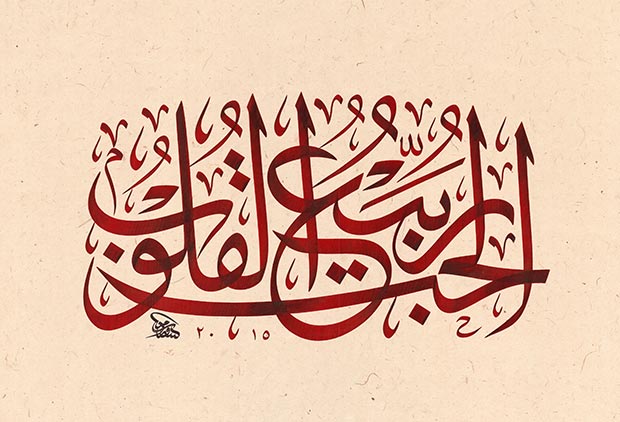 الحب ربيع القلوب
٢٠١٥